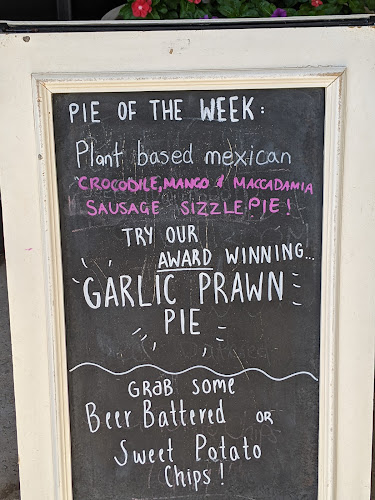 PIE OF THE WEEK:
Plant based mexican
CROCODILE, MANGO & MACCADAMIA
SAUSAGE SIZZLE PIE!
TRY OUR
AWARD WINNING...
GARLIC PRAWN
PIE
GRAB SOME
Beer Battered OR
Sweet Potato
Chips!